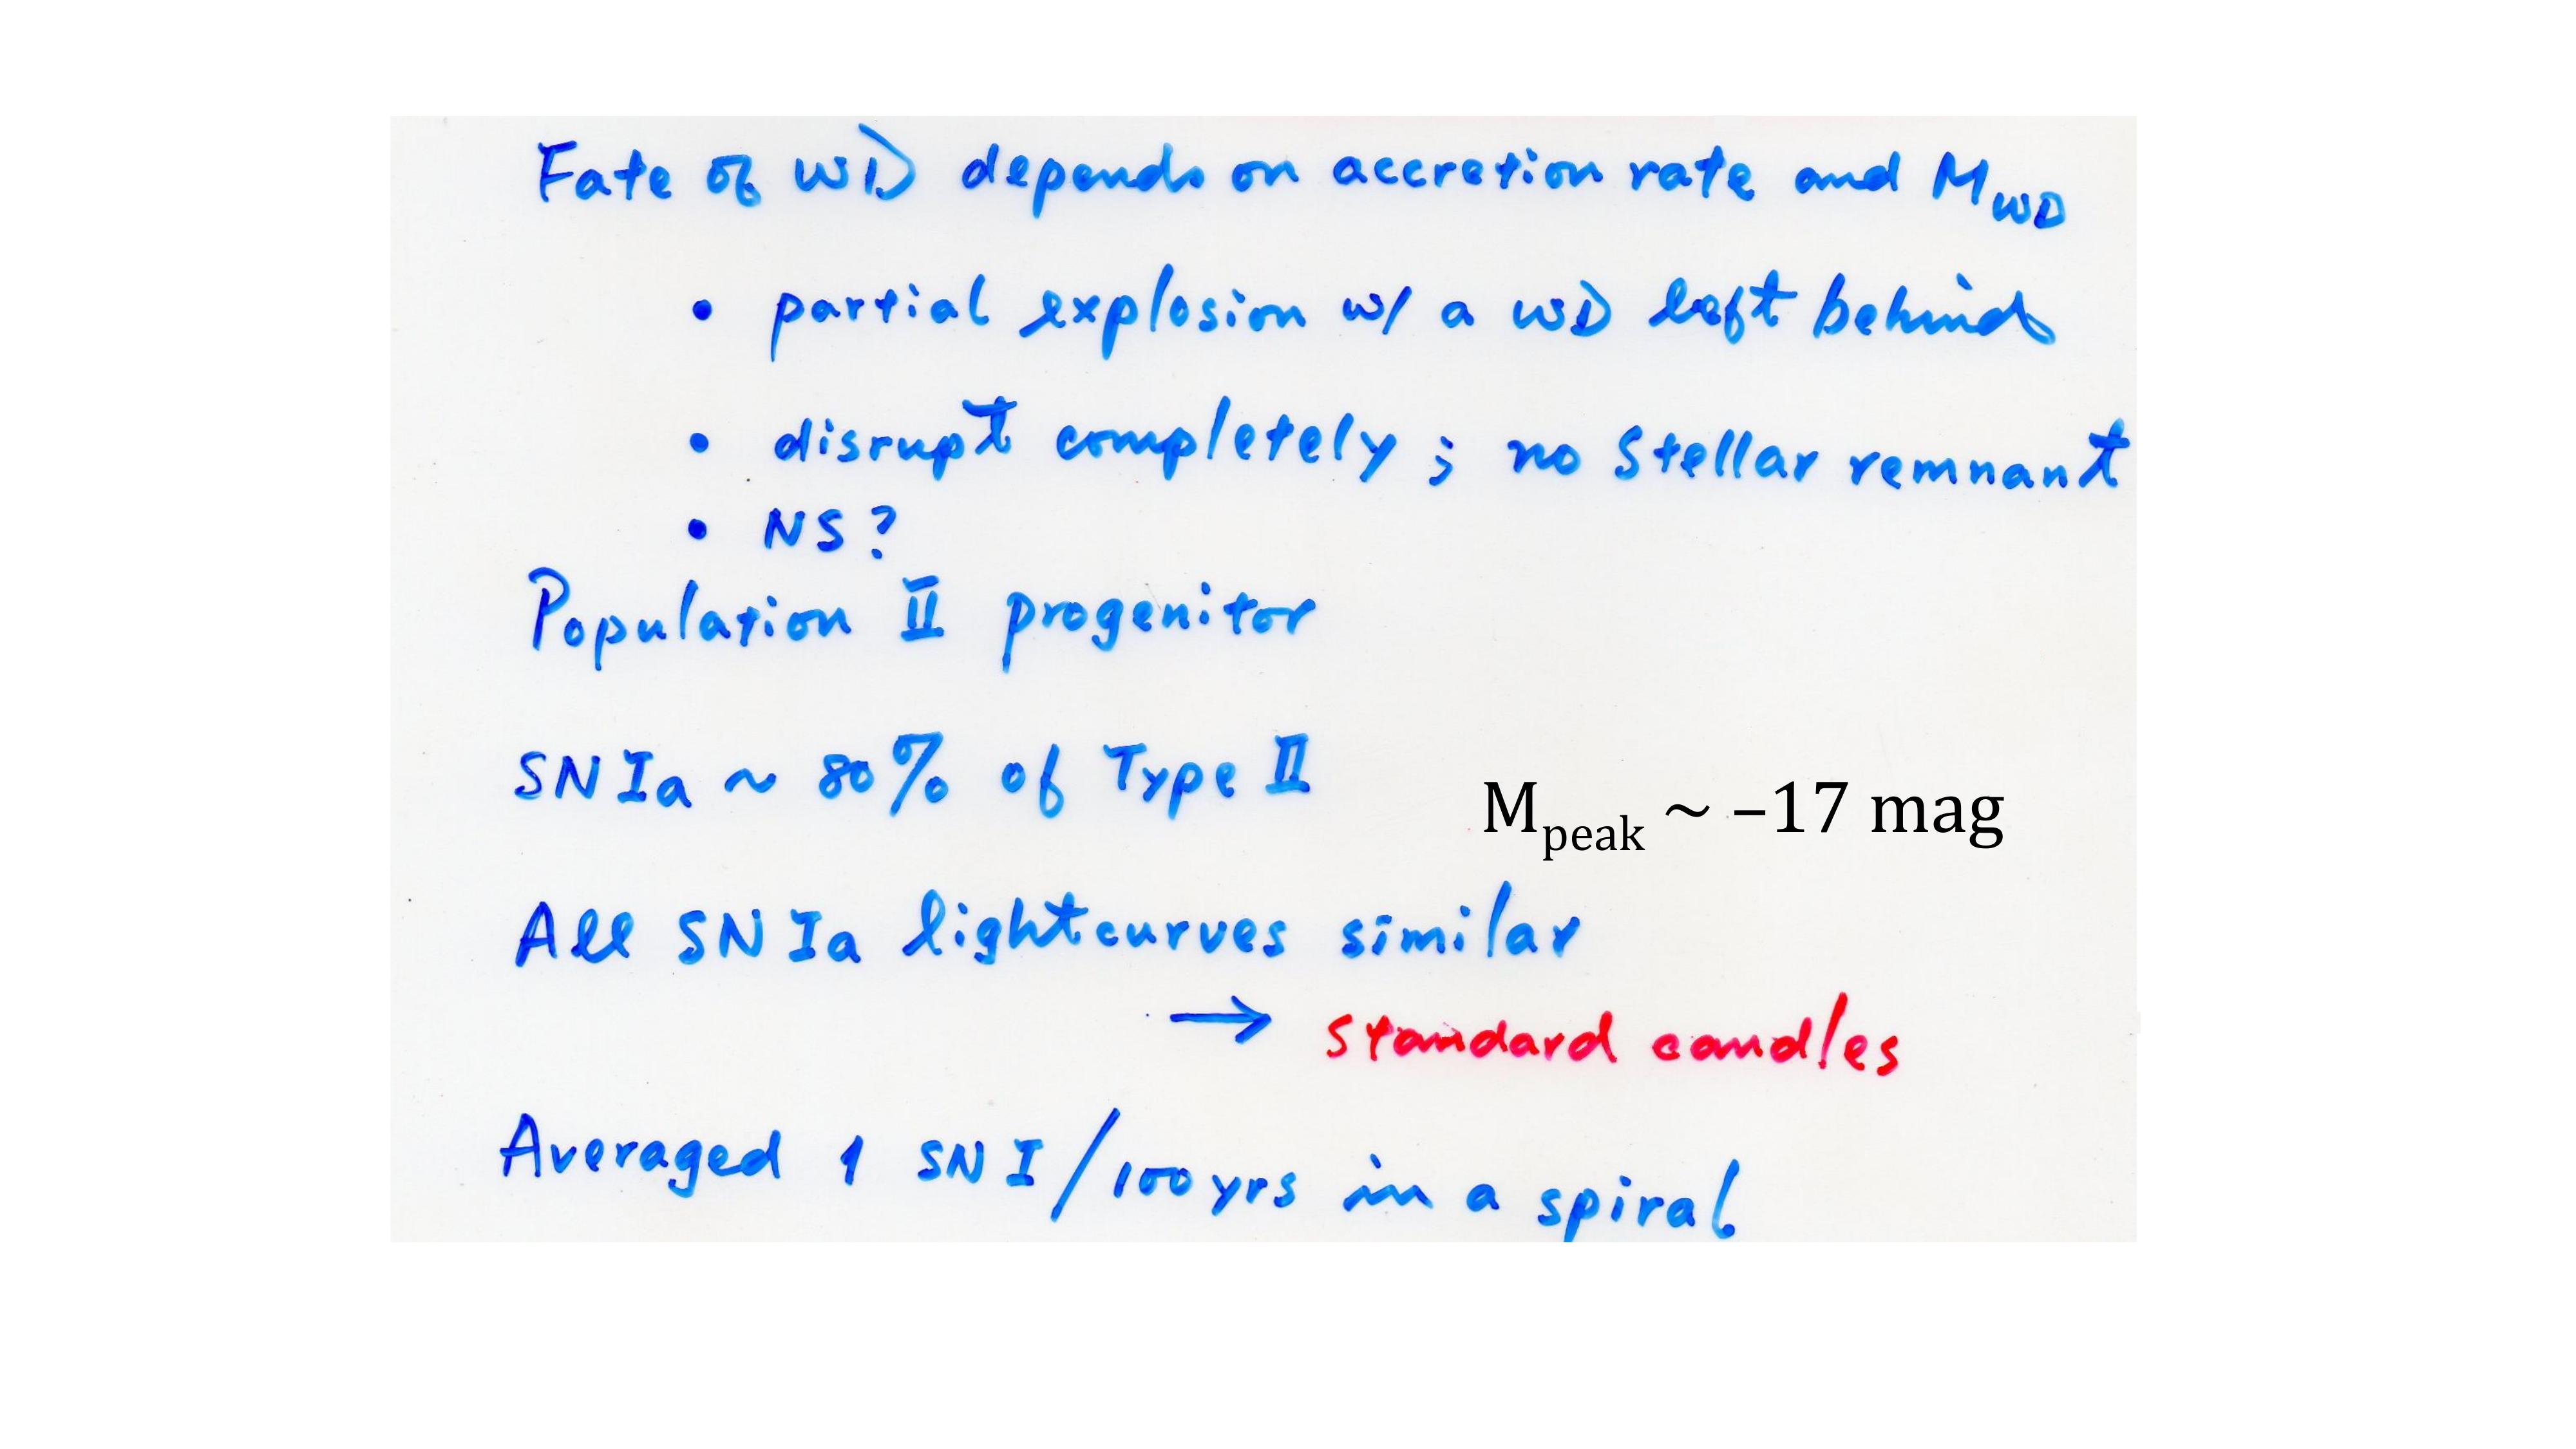 Fate of WD depends on accretion rate and M_WD
• partial explosion w/ a WD left behind
• disrupt completely ; no stellar remnant
• NS?
Population II progenitor
SN Ia ~ 80% of Type II
M_peak ~ –17 mag
All SN Ia lightcurves similar
→ standard candles
Averaged 1 SN I/100 yrs in a spiral